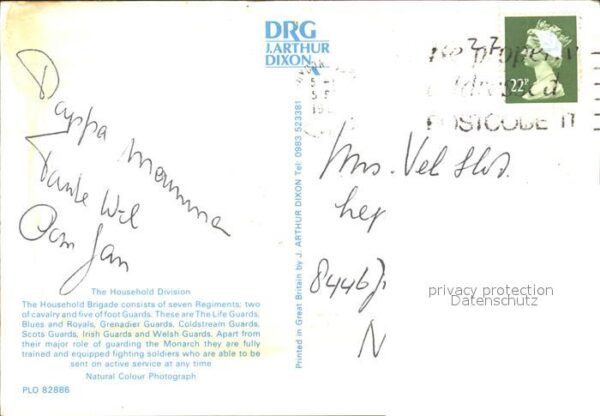 DRG
J. ARTHUR
DIXON
22P
be properly
addressed
POSTCODE IT
Pappa Mamma
Tante Wil
Oom Jan
Printed in Great Britain by J. ARTHUR DIXON Tel: 0983 523381
Mrs. Vel
8446
N
privacy protection
Datenschutz
The Household Division
The Household Brigade consists of seven Regiments; two
of cavalry and five of foot Guards. These are The Life Guards,
Blues and Royals, Grenadier Guards, Coldstream Guards,
Scots Guards, Irish Guards and Welsh Guards. Apart from
their major role of guarding the Monarch they are fully
trained and equipped fighting soldiers who are able to be
sent on active service at any time
Natural Colour Photograph
PLO 82886